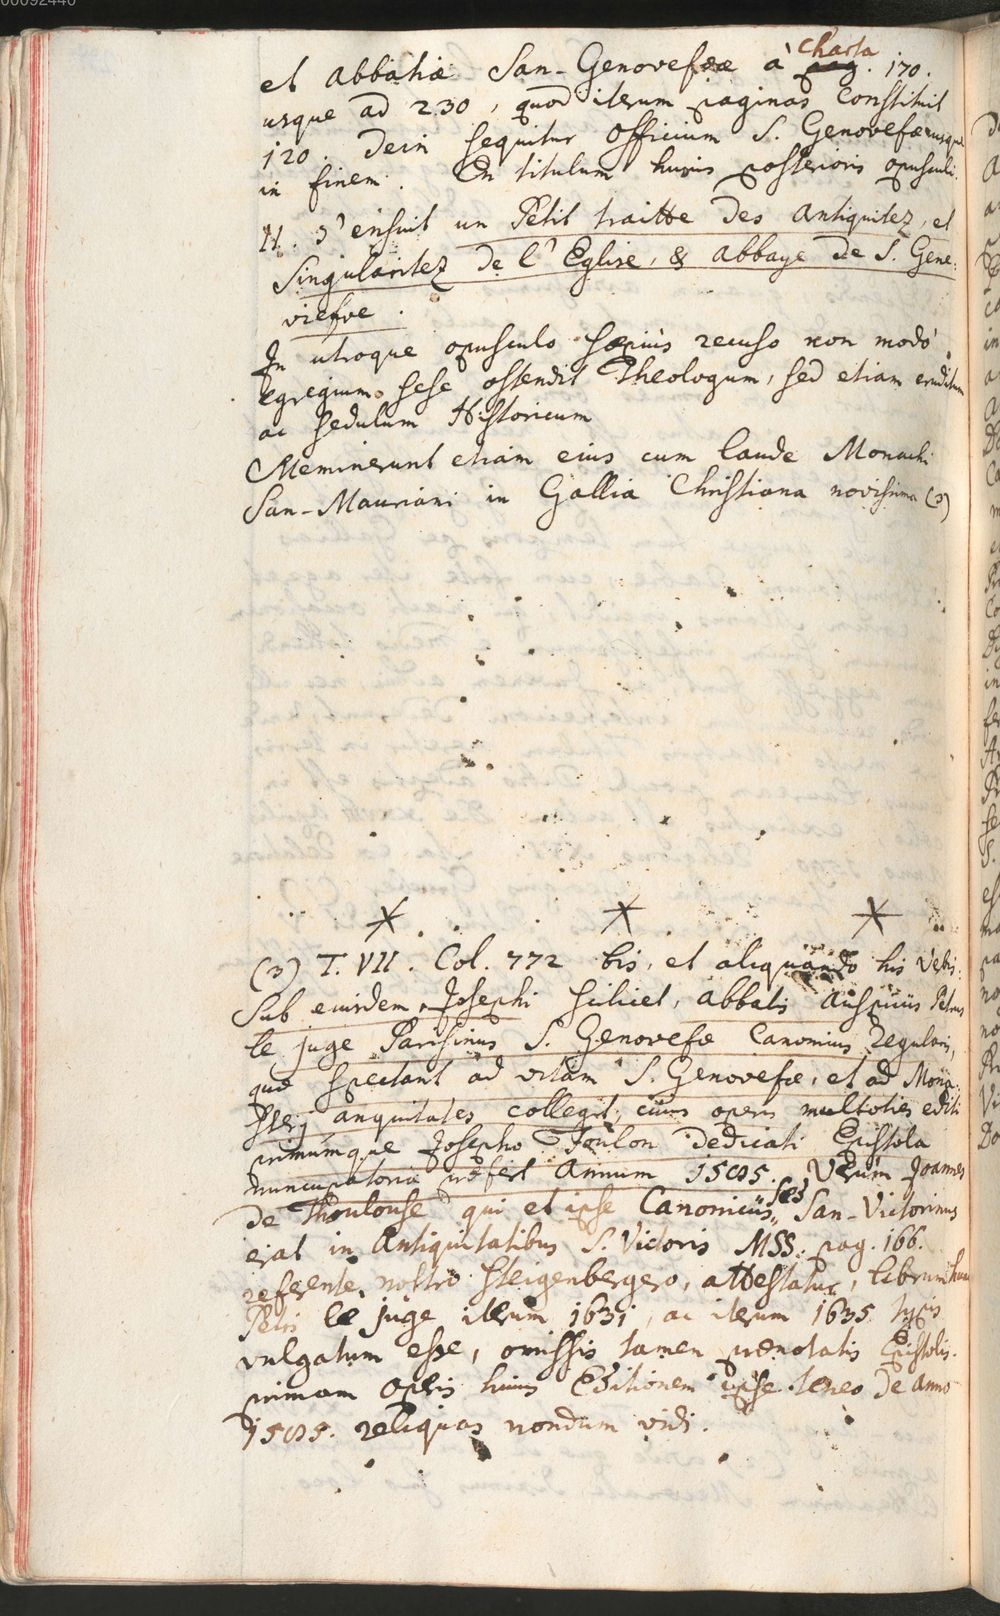 00092440
et abbatiæ San-Genovefææ à charta pag. 170.
usque ad 230, quod iterum paginas constituit
120. Dein sequitur Officium S. Genovefæ usque
in finem. En titulum huius posterioris opusculi.
II. S'ensuit un Petit traitte des antiquitez, et
Singularitez de l'Eglise, & abbaye de S. Gene-
viefve.
In utroque opusculo sæpius recuso non modò
egregium sese ostendit Theologum, sed etiam eruditum
ac sedulum Historicum
Meminerunt etiam eius cum laude Monachi
San-Mauriani in Gallia Christiana novissima (3)
(3) T. VII. Col. 772 bis, et aliquando his verbis:
Sub eiusdem, Josephi scilicet, abbatis auspiciis Petrus
le juge Parisinus S. Genovefæ Canonicus Regularis,
quæ spectant ad vitam S. Genovefæ, et ad Mona-
sterij anquitates collegit; cuius operis multoties editi
primumque Josepho Foulon dedicati Epistola
nuncupatoria refert annum 1585. Verùm Joannes
de Thoulouse qui et ipse Canonicus San-Victorinus
erat in Antiquitatibus S. Victoris MSS. pag. 166.
referente nostro Steigenbergero, attestatur, librum hunc
Petri le juge iterum 1631, ac iterum 1635 typis
vulgatum esse, omissis tamen prænotatis Epistolis.
primam operis huius Editionem ipse teneo de anno
1585. reliquas nondum vidi.